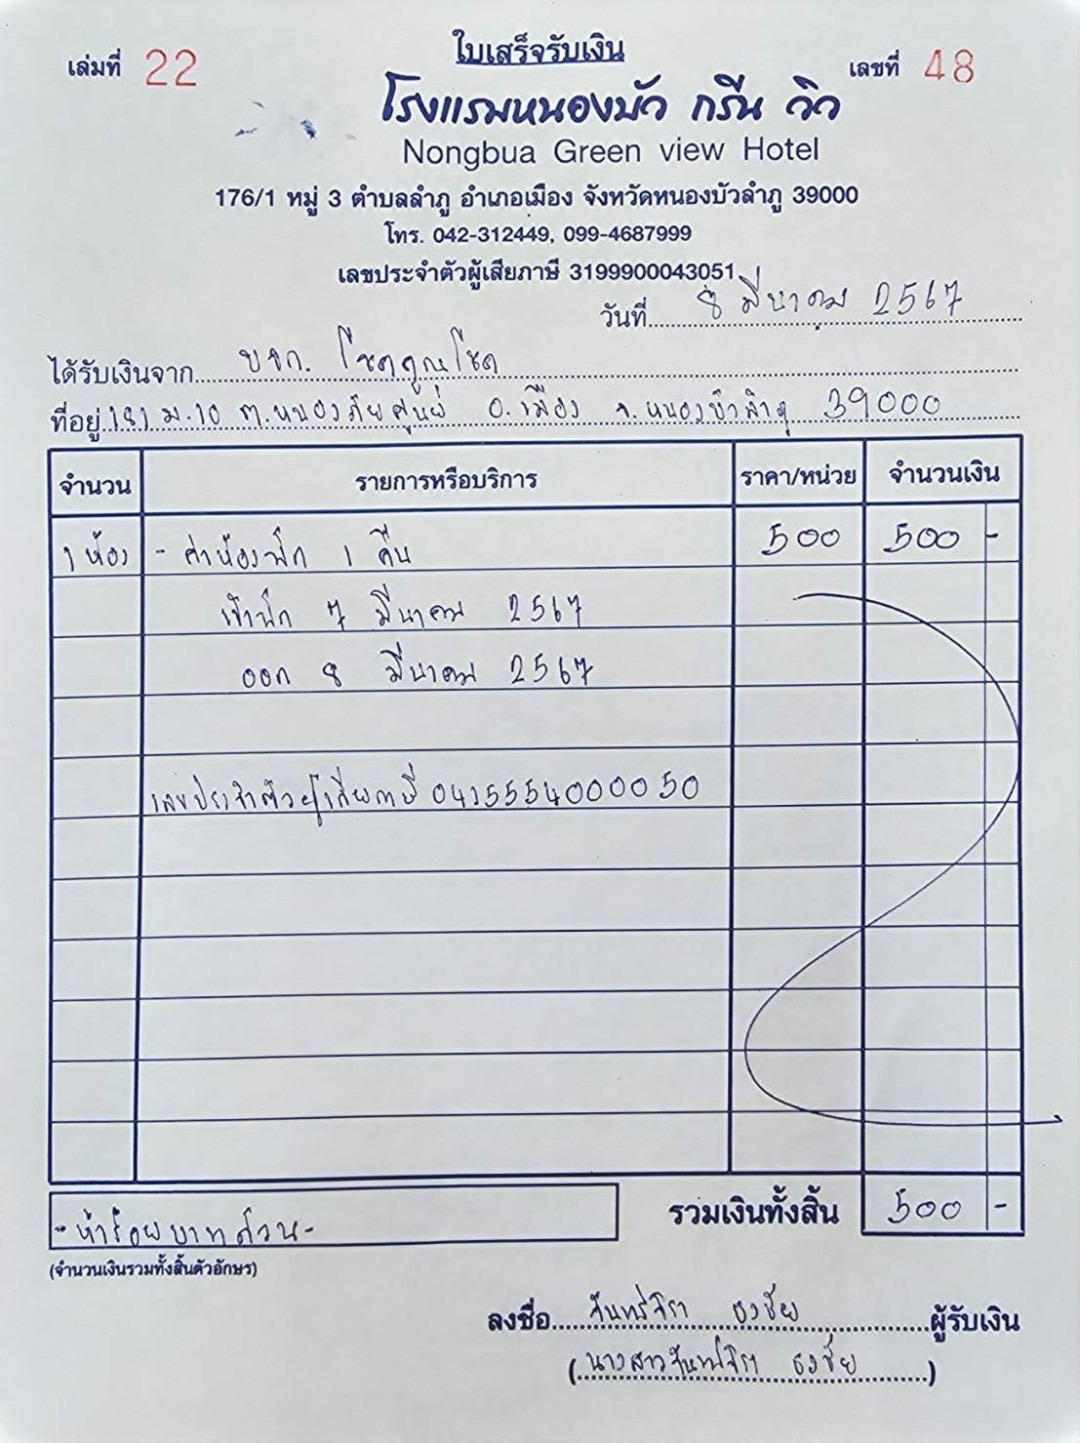 ใบเสร็จรับเงิน
เล่มที่ 22
เลขที่ 48
โรงแรมหนองบัว กรีน วิว
Nongbua Green view Hotel
176/1 หมู่ 3 ตำบลลำภู อำเภอเมือง จังหวัดหนองบัวลำภู 39000
โทร. 042-312449, 099-4687999
เลขประจำตัวผู้เสียภาษี 3199900043051
วันที่ 8 มีนาคม 2567
ได้รับเงินจาก บจก. โชคคูณโชค
ที่อยู่ 181 ม.10 ต.หนองภัยศูนย์ อ.เมือง จ.หนองบัวลำภู 39000
จำนวน รายการหรือบริการ ราคา/หน่วย จำนวนเงิน
1 ห้อง - ค่าห้องพัก 1 คืน 500 500 -
เข้าพัก 7 มีนาคม 2567
ออก 8 มีนาคม 2567
เลขประจำตัวผู้เสียภาษี 0415554000050
รวมเงินทั้งสิ้น 500 -
- ห้าร้อยบาทถ้วน -
(จำนวนเงินรวมทั้งสิ้นตัวอักษร)
ลงชื่อ จันทร์จิรา ธงชัย ผู้รับเงิน
(นางสาวจันทร์จิรา ธงชัย)